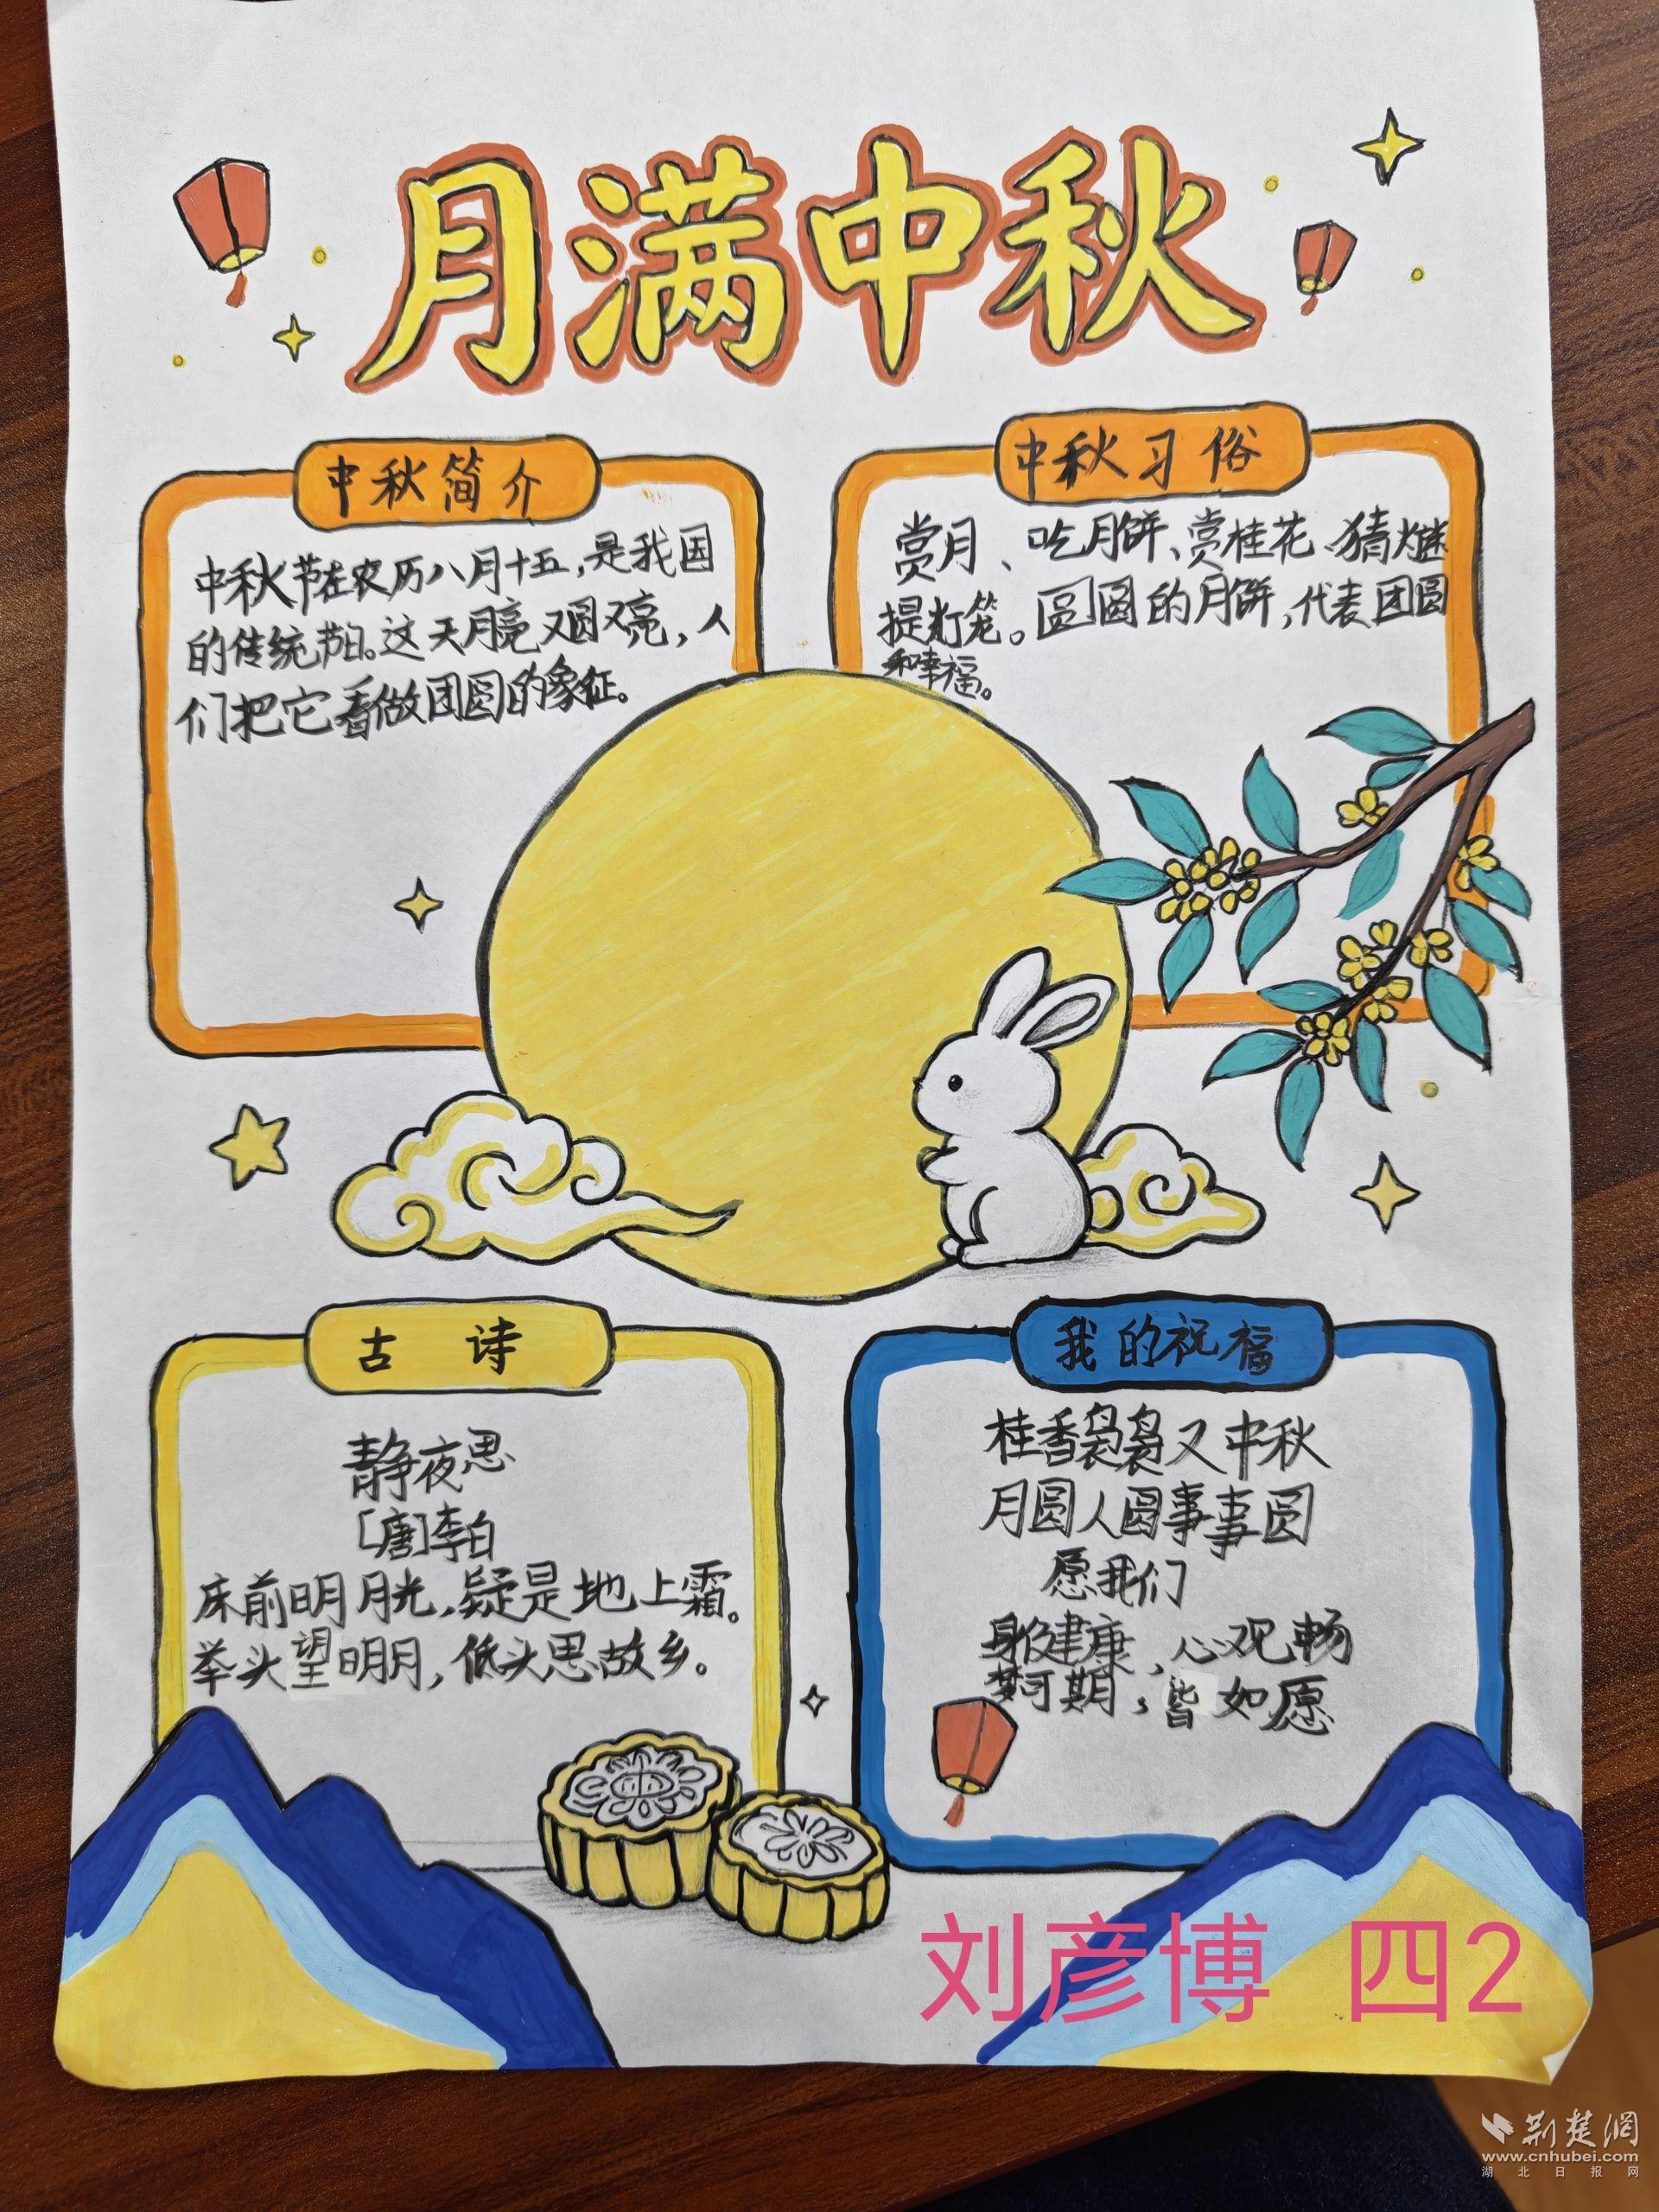 月满中秋
中秋简介
中秋节在农历八月十五，是我国
的传统节日。这天月亮又圆又亮，人
们把它看做团圆的象征。
中秋习俗
赏月、吃月饼、赏桂花、猜灯谜
提灯笼。圆圆的月饼，代表团圆
和幸福。
古诗
静夜思
[唐]李白
床前明月光，疑是地上霜。
举头望明月，低头思故乡。
我的祝福
桂香袅袅又中秋
月圆人圆事事圆
愿我们
身体健康，心观畅
梦可期，皆如愿
刘彦博 四2
荆楚網
www.cnhubei.com
湖北日报网